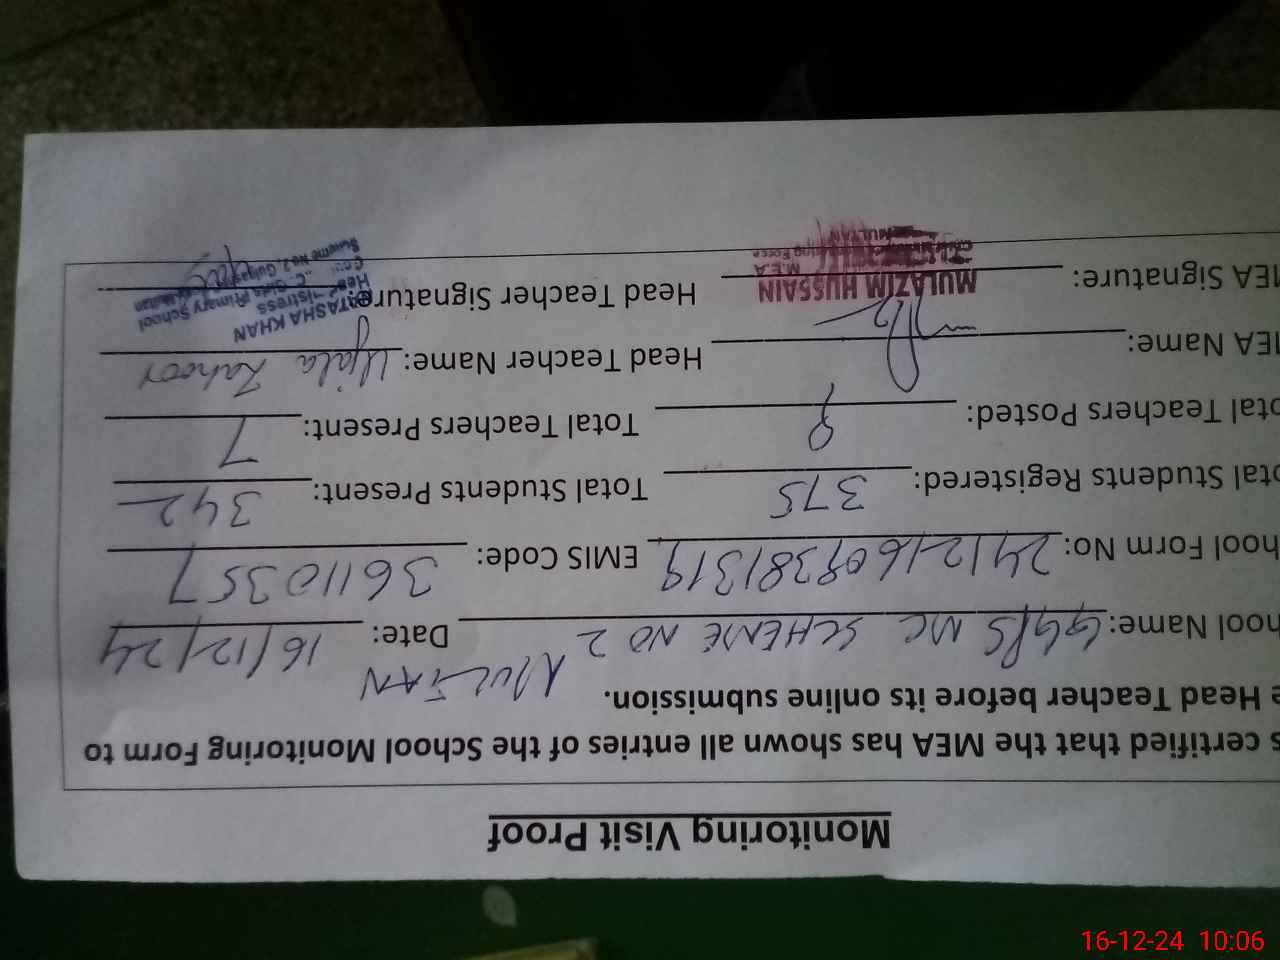 Monitoring Visit Proof
s certified that the MEA has shown all entries of the School Monitoring Form to
e Head Teacher before its online submission.
hool Name: GGPS MC SCHEME NO 2 MULTAN Date: 16/12/24
hool Form No: 24121609381319 EMIS Code: 36110357
otal Students Registered: 375 Total Students Present: 342
otal Teachers Posted: 8 Total Teachers Present: 7
MEA Name: Head Teacher Name: Ujala Zahoor
MEA Signature: Head Teacher Signature:
MULAZIM HUSSAIN
M.E.A
MULTAN
NATASHA KHAN
Girls Primary School
Scheme No.2,
16-12-24 10:06